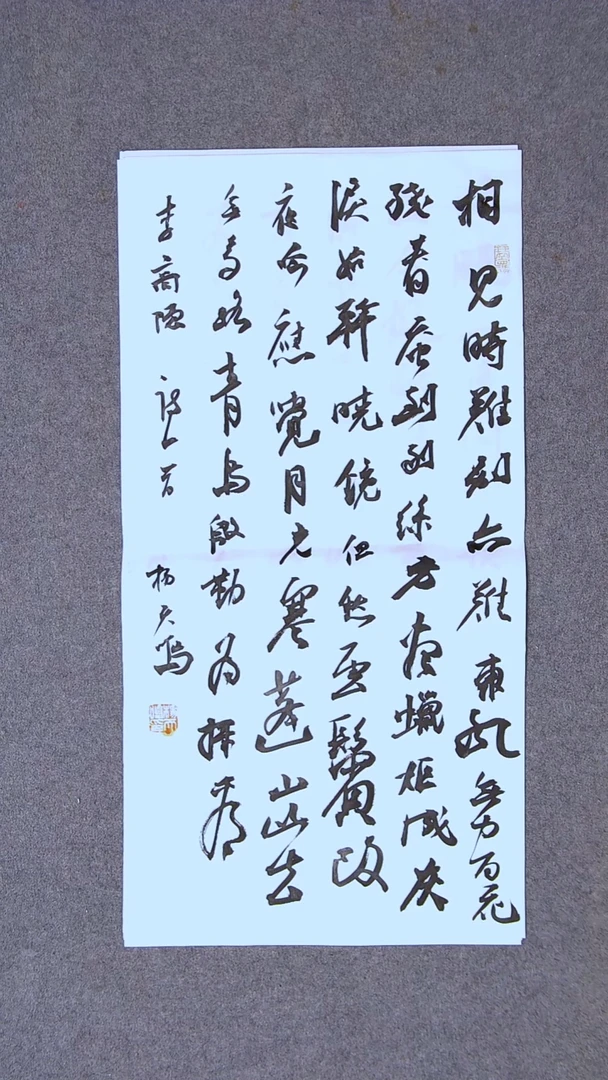 相見時難別亦難東風無力百花
殘春蚕到死絲方盡蠟炬成灰
淚始乾曉鏡但愁雲鬢改
夜吟應覺月光寒蓬山此去
無多路青鳥殷勤為探看
李商隱 詩一首 楊天